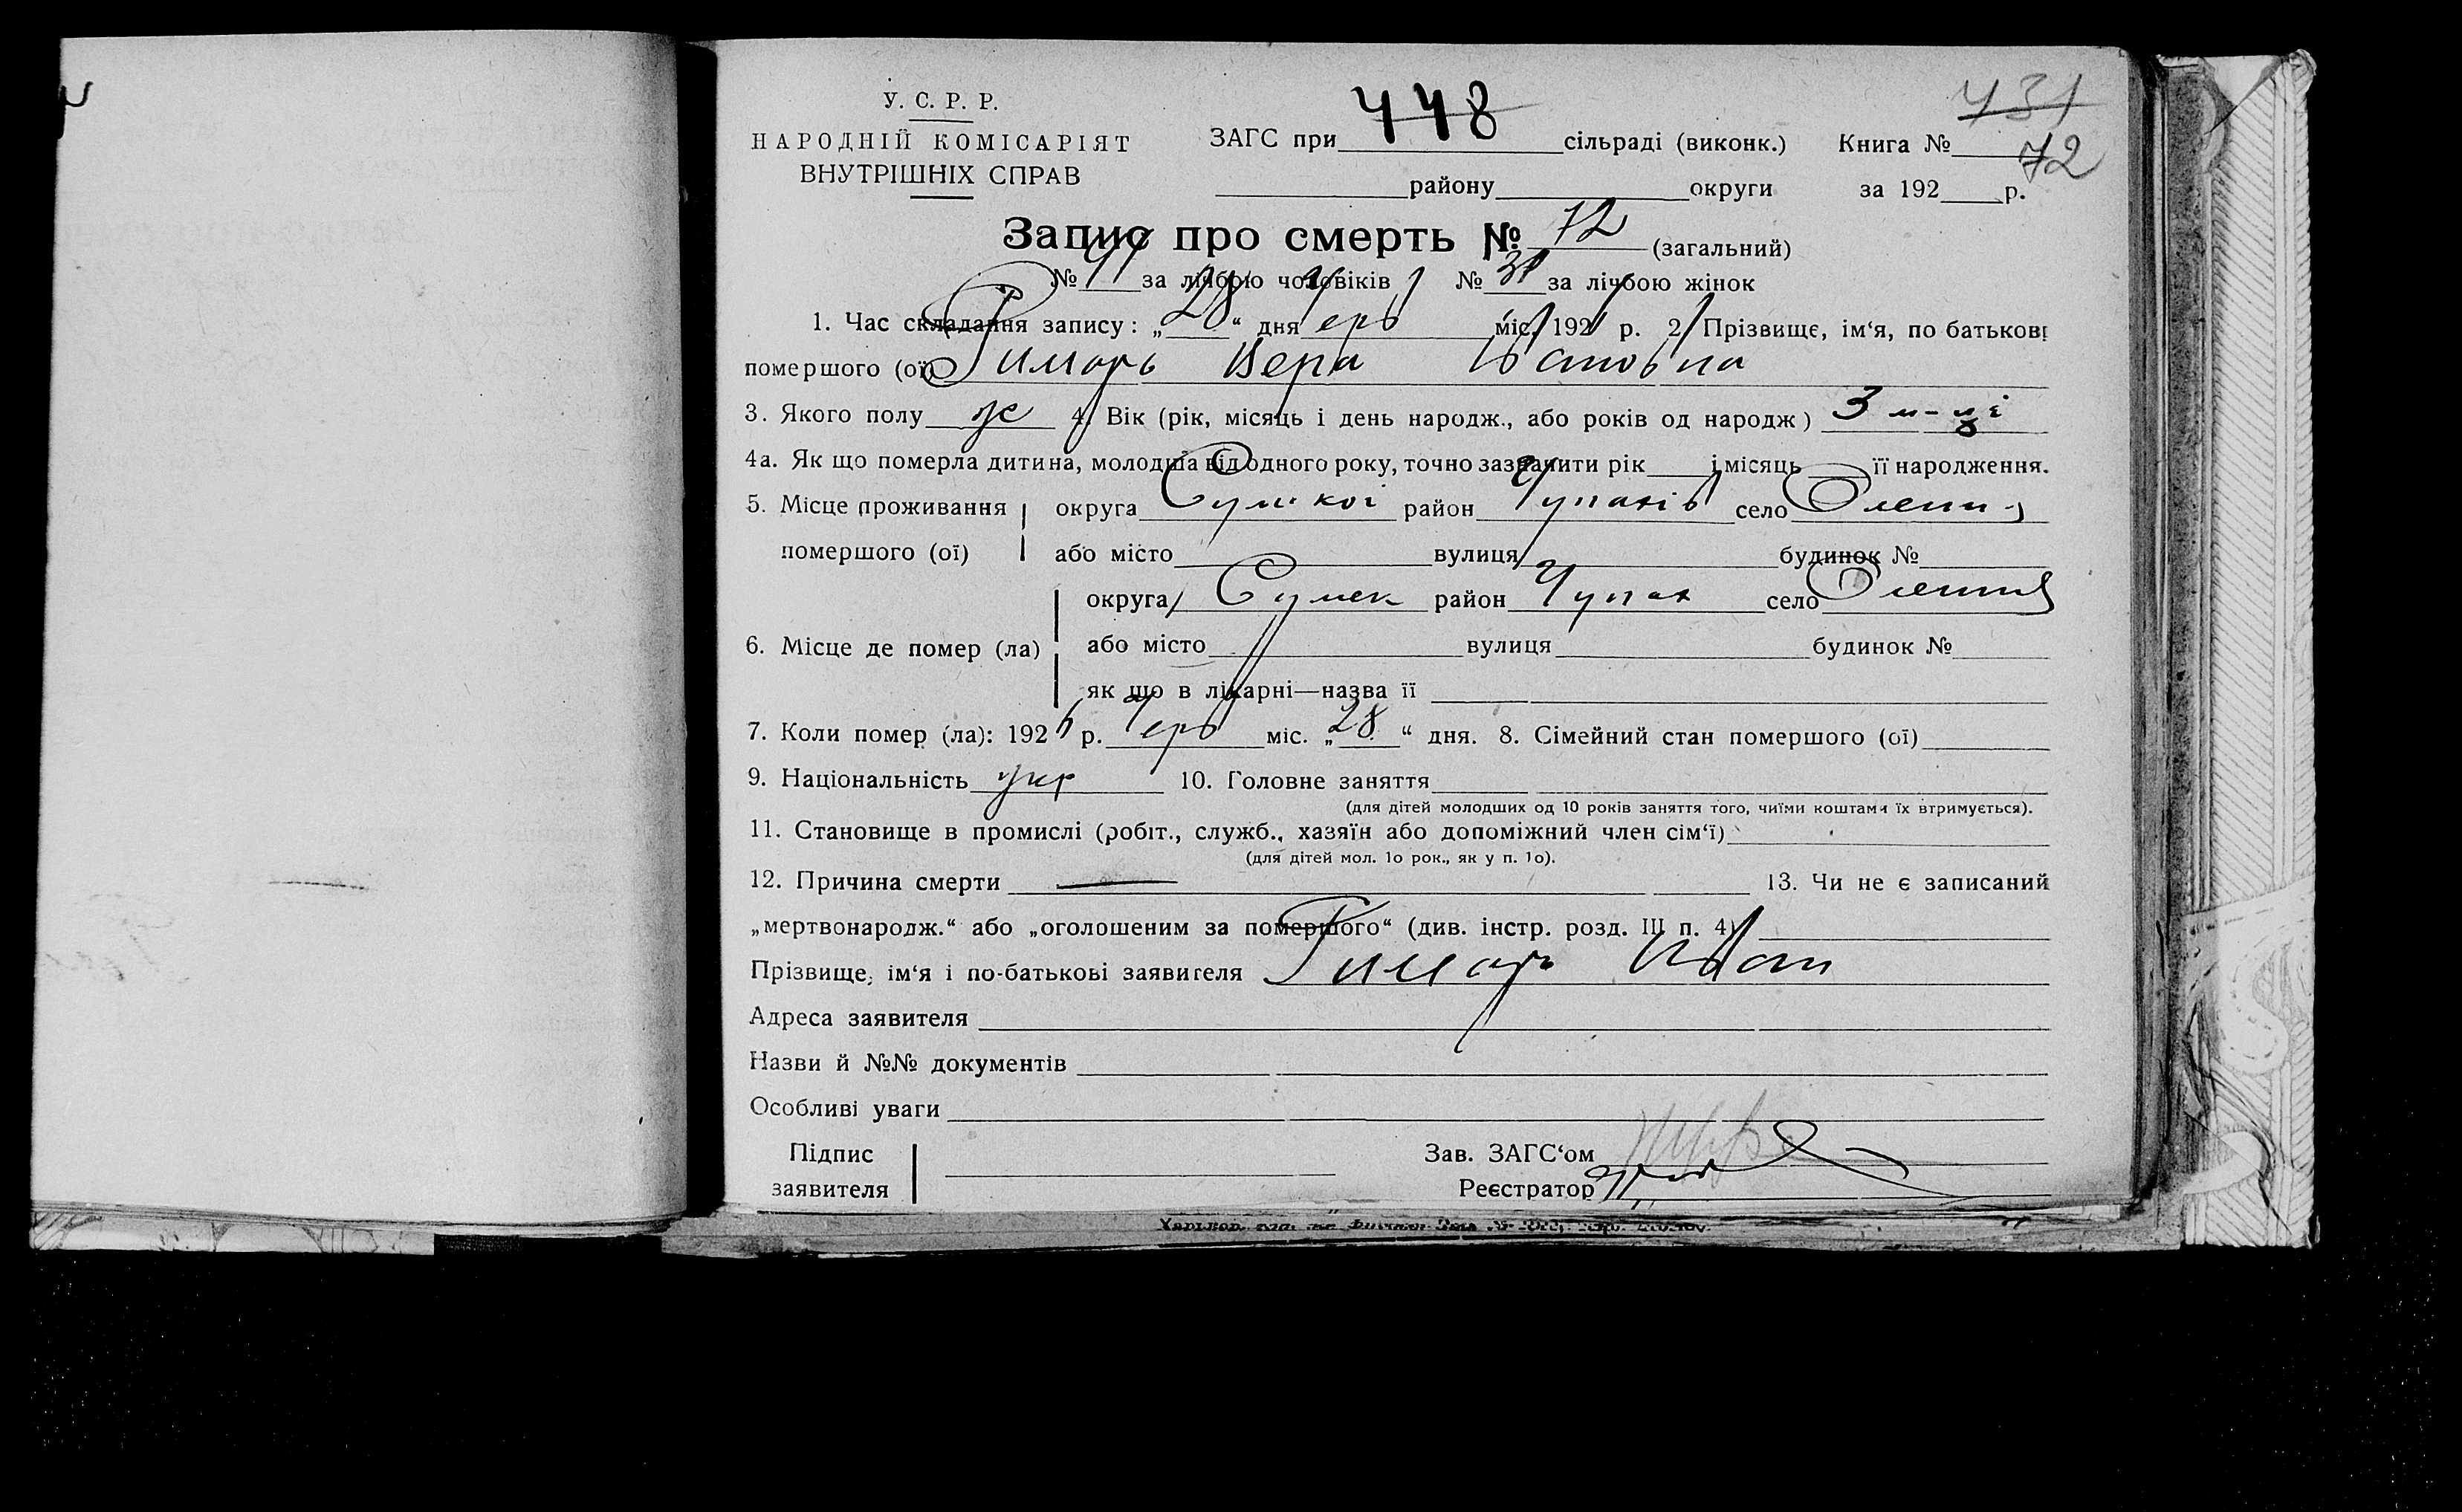 431
У. С. Р. Р.
НАРОДНІЙ КОМІСАРІЯТ
ВНУТРІШНІХ СПРАВ
448
ЗАГС при сільраді (виконк.) Книга № 72
району округи за 192 р.
Запис про смерть № 72 (загальний)
№ 41 за лічбою чоловіків № 31 за лічбою жінок
1. Час складання запису: „28“ дня черв міс. 192 р. 2. Прізвище, ім‘я, по батькові
помершого (ої) Римарь Вера Ивановна
3. Якого полу ж 4. Вік (рік, місяць і день народж., або років од народж) 3 м-ці
4а. Як що померла дитина, молодша від одного року, точно зазначити рік і місяць її народження.
5. Місце проживання округа Сумскої район Чупахів село Олешня
помершого (ої) або місто вулиця будинок №
округа Сумск район Чупах село Олешня
6. Місце де помер (ла) або місто вулиця будинок №
як що в лікарні—назва її
7. Коли помер (ла): 192 р. Черв міс. „28“ дня. 8. Сімейний стан помершого (ої)
9. Національність укр 10. Головне заняття
(для дітей молодших од 10 років заняття того, чиїми коштами їх втримується).
11. Становище в промислі (робіт., служб., хазяїн або допоміжний член сім‘ї)
(для дітей мол. 1о рок., як у п. 1о).
12. Причина смерти — 13. Чи не є записаний
„мертвонародж.“ або „оголошеним за помершого“ (див. інстр. розд. III п. 4)
Прізвище, ім‘я і по-батькові заявителя Римарь Иван
Адреса заявителя
Назви й №№ документів
Особливі уваги
Підпис Зав. ЗАГС‘ом
заявителя Реєстратор